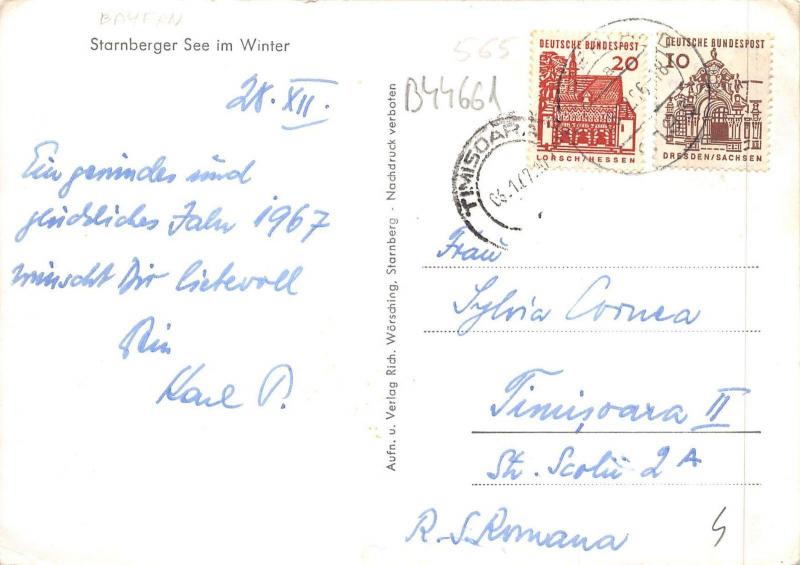 BAYERN
Starnberger See im Winter
28. XII.
Ein gesundes und
glückliches Jahr 1967
wünscht Dir liebevoll
Dein
Karl P.
Aufn. u. Verlag Rich. Wörsching, Starnberg - Nachdruck verboten
565
B44661
DEUTSCHE BUNDESPOST
20
LORSCH/HESSEN
DEUTSCHE BUNDESPOST
10
DRESDEN/SACHSEN
TIMISOARA
Frau
Sylvia Cornea
Timişoara II
Str. Scolii 2A
R.S.Romana